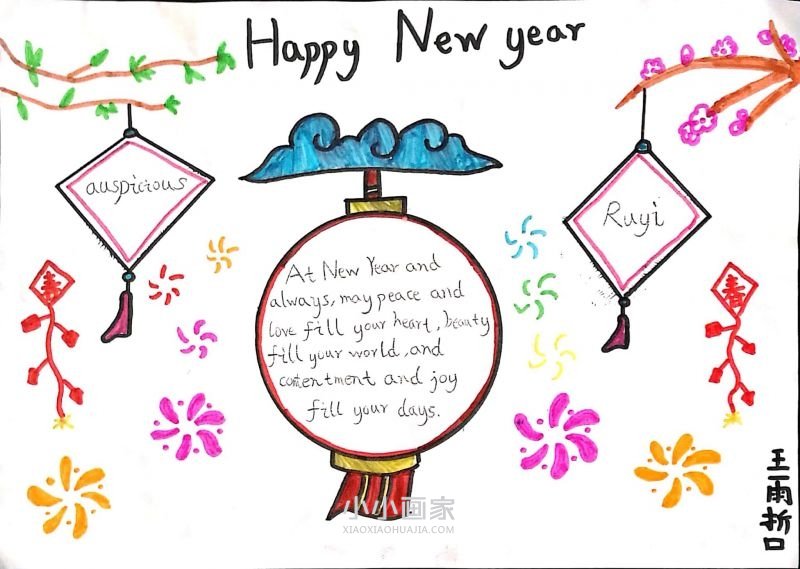 Happy New year
auspicious
Ruyi
At New Year and
always, may peace and
love fill your heart, beauty
fill your world, and
contentment and joy
fill your days.
春
春
王雨折口
小小画家
XIAOXIAOHUAJIA.COM